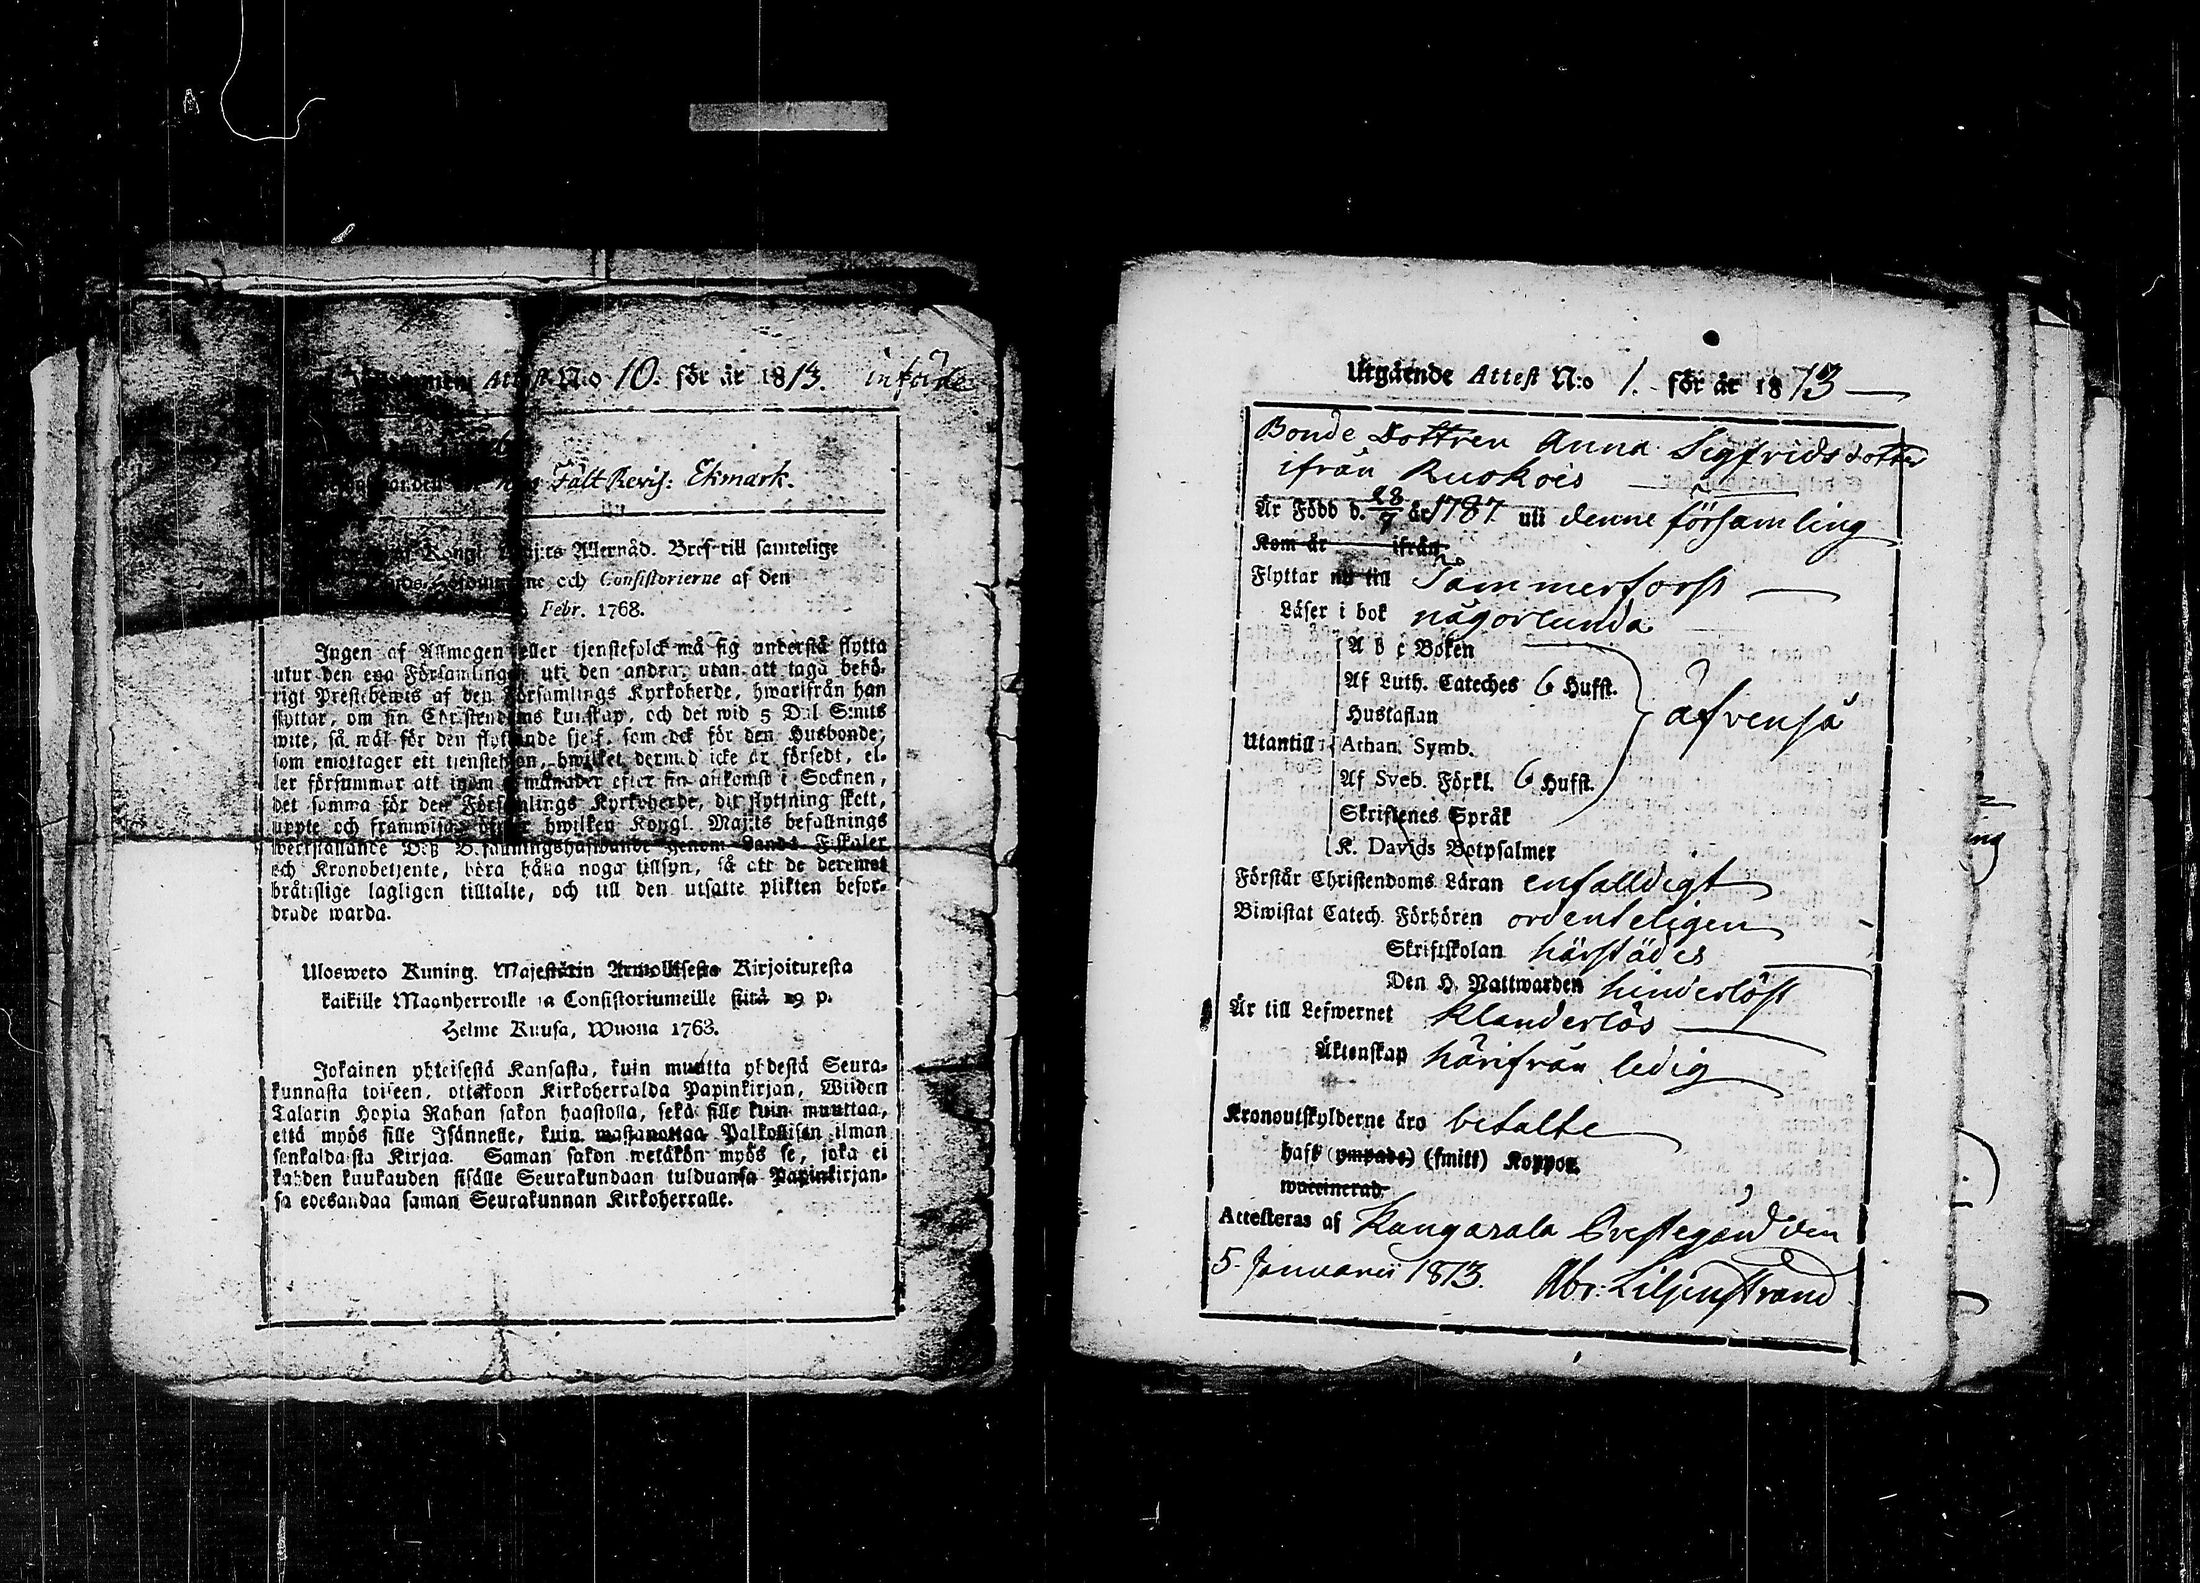 Attest N:o 10. för år 1813. införde
Fält Revis: Ekmark.
af Kongl. Maj:ts Allernåd. Bref till samtelige
och Consistorierne af den
Febr. 1768.
Ingen af Allmogen eller tjenstefolck må sig understå flytta
utur den ena Församlingen uti den andra, utan att taga behö-
rigt Prestebewis af den Församlings Kyrkoherde, hwarifrån han
flyttar, om sin Christendoms kunskap, och det wid 5 Dal S:mts
wite, så wäl för den flyttande sjelf, som ock för den Husbonde,
som emottager ett tjenstehjon, hwilket dermed icke är försedt, el-
ler försummar att inom månader efter sin ankomst i Socknen,
det samma för den Församlings Kyrkoherde, dit flyttning skett,
uppte och framwisa, hwilken Kongl. Maj:ts befallnings
werkställande Deß Befallningshafwande genom Lands Fiskaler
och Kronobetjente, böra hålla noga tillsyn, så att de deremot
brätislige lagligen tilltalte, och till den utsatte plikten befor-
drade warda.
Ulosweto Kuning. Majestätin Armollisesta Kirjoituxesta
kaikille Maanherroille ja Consistoriumeille siitä 19 p.
Helme Kuusa, Wuona 1763.
Jokainen yhteisestä Kansasta, kuin muutta yhdestä Seura-
kunnasta toiseen, ottakoon Kirkoherralda Papinkirjan, Wiiden
Talarin Hopia Rahan sakon haastolla, sekä sille kuin muuttaa,
että myös sille Isännelle, kuin wastanottaa Palkollisen ilman
senkaldaista Kirjaa. Saman sakon wetäkön myös se, joka ei
kahden kuukauden sisälle Seurakundaan tulduansa Papinkirjan-
sa edesandaa saman Seurakunnan Kirkoherralle.
Utgående Attest N:o 1. för år 1813
Bonde Dottren Anna Sigfridsdotter
ifrån Ruokois
Är Född d. 28/7 år 1787 uti denne församling
Kom år ifrån
Flyttar nu till Tammerforss
Läser i bok någorlunda
A b c Boken
Af Luth. Cateches 6 Hufst.
Hustaflan
Utantill Athan. Symb. äfvenså
Af Sveb. Förkl. 6 Hufst.
Skriftenes Språk
K. Davids Botpsalmer
Förstår Christendoms Läran enfalldigt
Biwistat Catech. Förhören ordenteligen
Skriftskolan härstädes
Den H. Nattwarden hinderlöst
Är till Lefwernet klanderlös
Äktenskap härifrån ledig
Kronoutskylderne äro betalte
haft (ympade) (smitt) Koppor.
waccinerad.
Attesteras af Kangasala Prestegård den
5. Januarii 1813. Abr: Liljenstrand